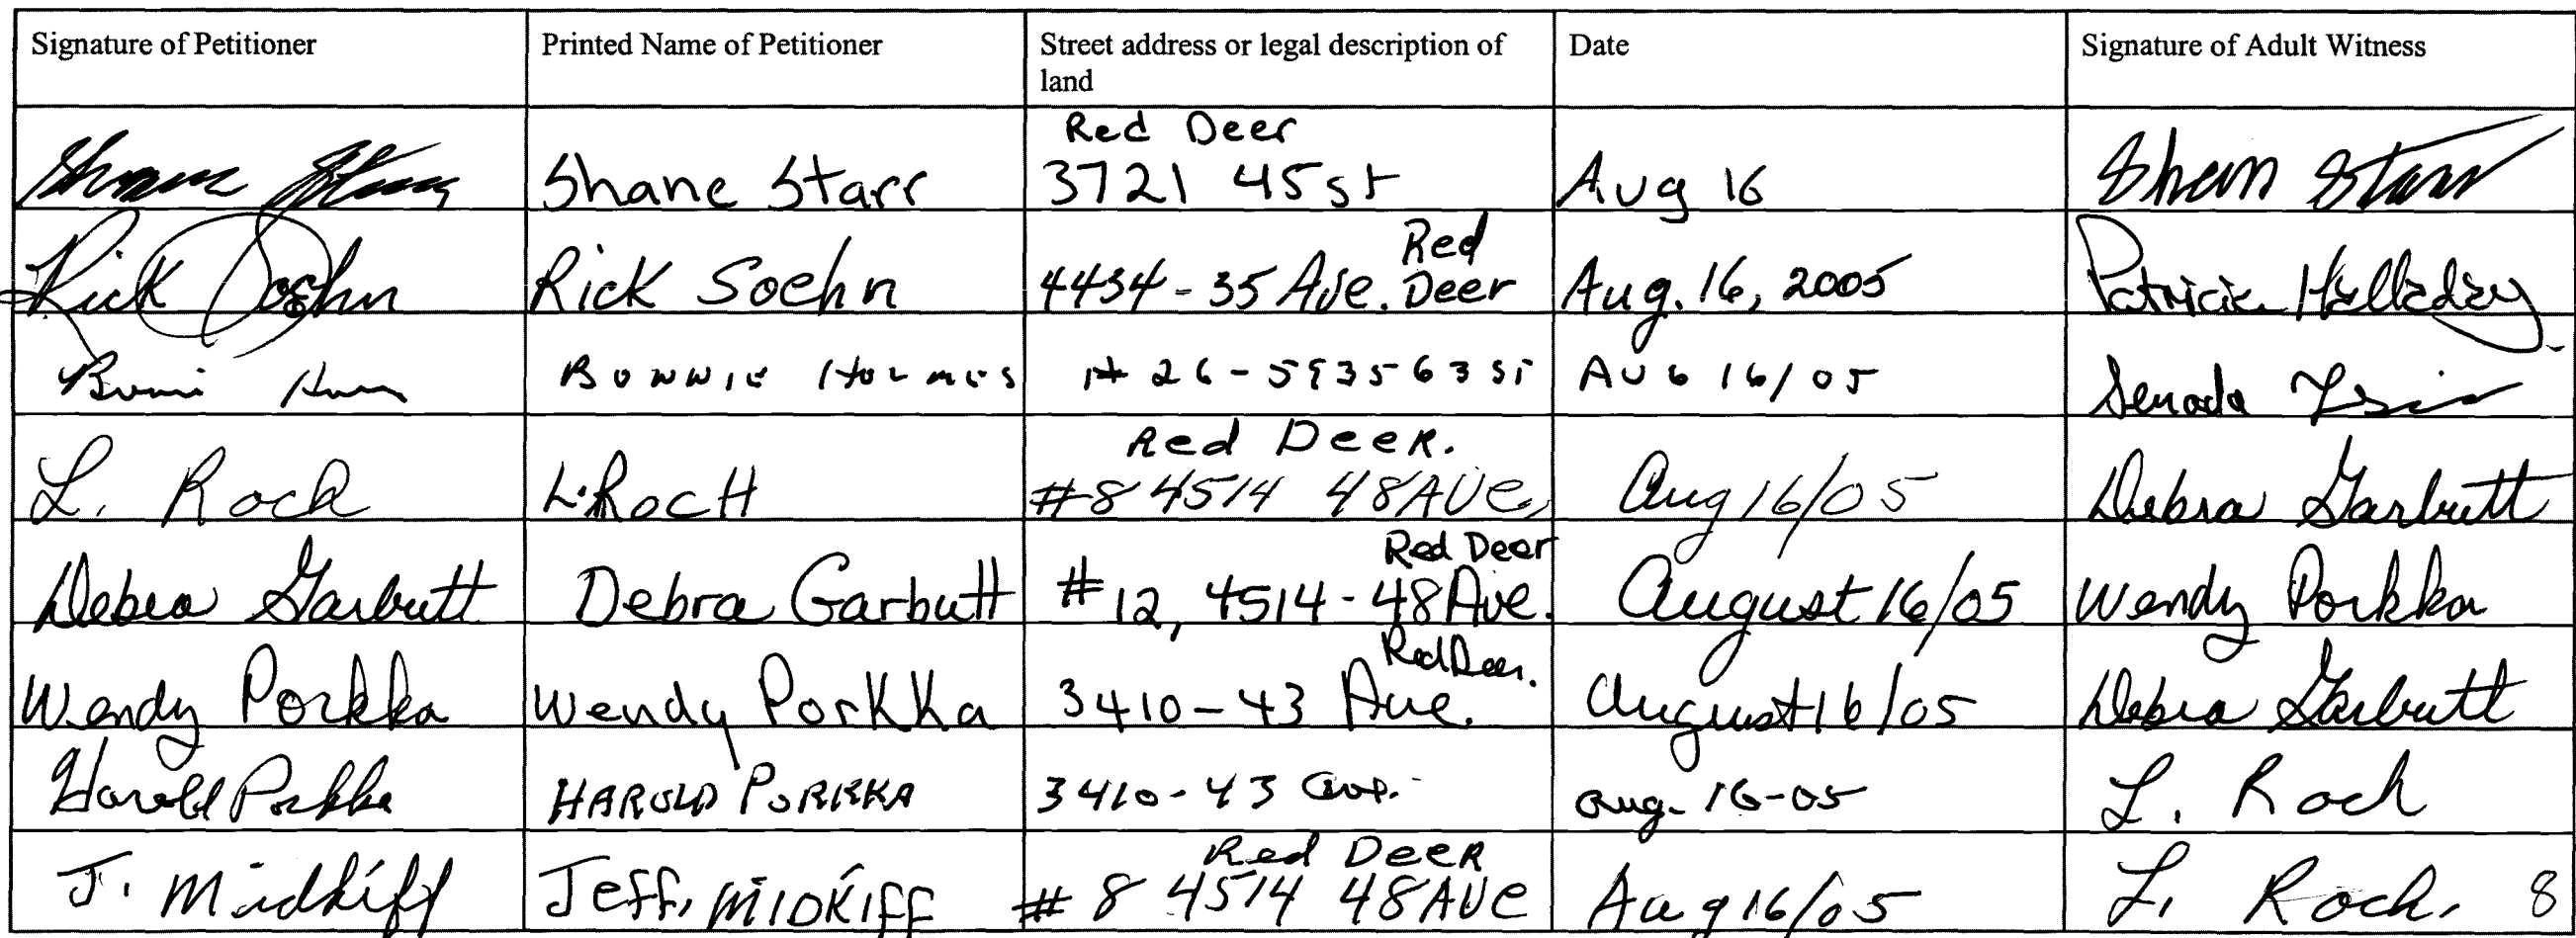 Signature of Petitioner Printed Name of Petitioner Street address or legal description of land Date Signature of Adult Witness
Red Deer
Shane Starr Shane Starr 3721 45 st Aug 16 Shan Starr
Red
Rick Soehn Rick Soehn 4434 - 35 Ave. Deer Aug. 16, 2005 Patricia Halladay
BONNIE HOLMES # 26 - 5935 63 ST AUG 16/05 Senada
Red Deer.
L. Roch L. RocH #8 4514 48 AVe, Aug 16/05 Debra Garbutt
Red Deer
Debra Garbutt Debra Garbutt #12, 4514 - 48 Ave. August 16/05 Wendy Porkka
Red Deer.
Wendy Porkka Wendy PorKKa 3410 - 43 Ave. August 16/05 Debra Garbutt
Harold Porkka HAROLD PORKKA 3410 - 43 Ave. Aug - 16-05 L. Roch
Red Deer
J. Midkiff Jeff, MIDKIFF # 8 4514 48 AVe Aug 16/05 L. Roch. 8